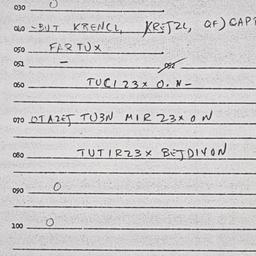 030
040 -BUT KRENCL, KRETZL, OF) CAPT
050 FARTUX
051 -
052
060 TUCI 23X O. N-
070 OTAZET TU3N MIR 23X O N
080 TUTIR23X BETDIVON
090 O
100 O